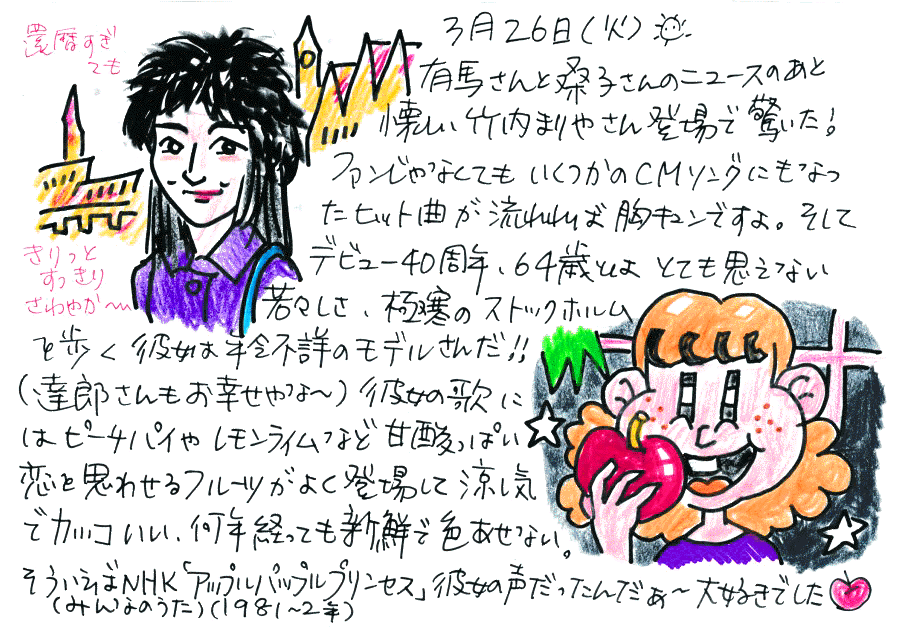 還暦すぎ
ても
3月26日(火)
有馬さんと桑子さんのニュースのあと
懐しい竹内まりやさん登場で驚いた!
ファンじゃなくても いくつかのCMソングにもなっ
たヒット曲が流れれば胸キュンですよ。そして
デビュー40周年、64歳とはとても思えない
きりっと
すっきり
さわやか〜
若々しさ、極寒のストックホルム
を歩く彼女は年令不詳のモデルさんだ!!
(達郎さんもお幸せやな〜)彼女の歌に
はピーチパイやレモンライムなど甘酸っぱい
恋を思わせるフルーツがよく登場して涼し気
でカッコいい、何年経っても新鮮で色あせない。
そういえばNHK「アップルパップルプリンセス」彼女の声だったんだぁ〜大好きでした
(みんなのうた)(1981〜2年)